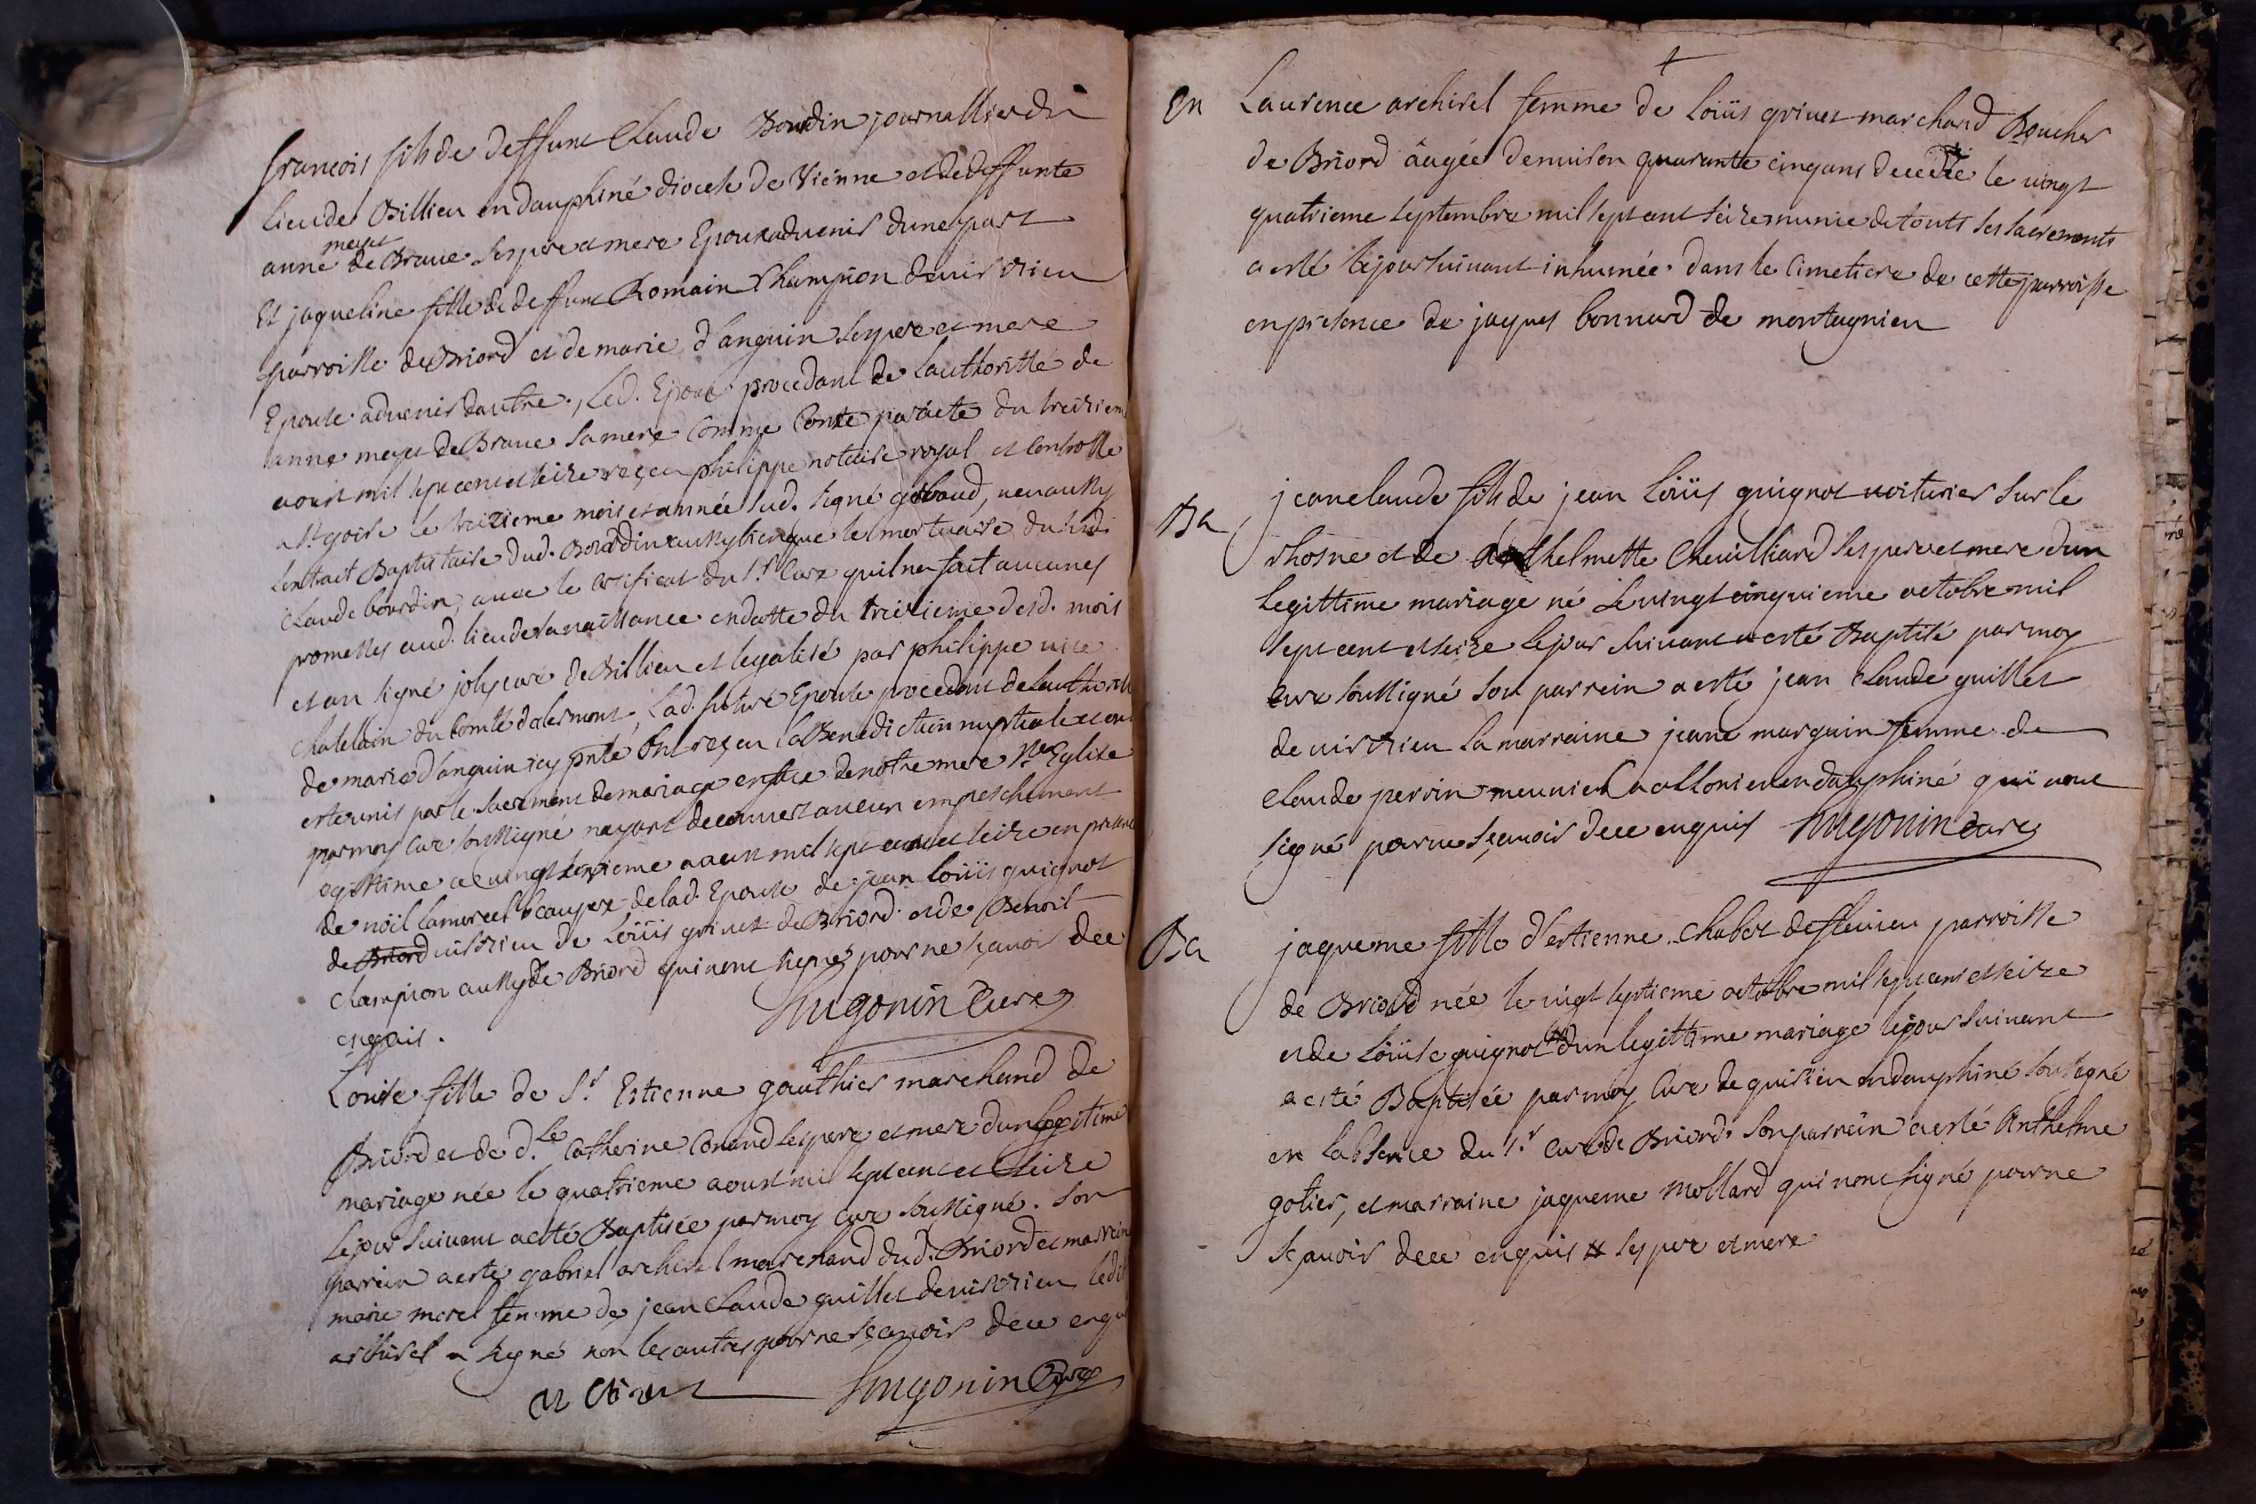 francois fils de deffunt Claude Bourdin journallier du
lieu de Billieu en dauphiné diocese de Vienne et de deffunte
meyet
anne de Braue ses pere et mere Epoux advenir dune part
Et jaqueline fille de deffunt Romain Champion de uirizieu
parroisse de Briord et de marie d'anguin ses pere et mere
Epouse advenir dautre, Led. Epoux procedant de lauthoritté de
anne meyet de Braue sa mere comme Conste par acte du treiziem
aoust mil sept cent et seize reçeu philippe notaire royal et controllé
a St goire le treizieme mois et année sud. signé gibaud, ueu aussy
lextrait Baptistaire dud. Bourdin aussy bien que le mortuaire dud.
Claude bourdin, auec le certificat du Sr. Curé quil ne sait aucunes
promesses aud. lieu de sa naissance en datte du treizieme desd. mois
et an signé joly curé de Billieu et legalisé par philippe uice
chatelain du comté de clermont, Lad. future Epouse procedant de lauthoritté
de marie d'anguin icy pnte Ont reçeu la Benediction nuptiale et ont
esté unis par le sacrement de mariage en face de notre mere Ste Eglise
par moy Curé soussigné nayant decouuert aucun empeschement
legittime ce uingt aoust mil sept cent et seize en presence
de nöel lamercel beaupere de lad. Epouse de jean loüis guignot
de Briord uirizieu de Loüis griuet de Briord et de Benoit
champion aussy de Briord qui nont signé pour ne sçauoir dece
enquis.
hugonin Curé
Louise fille de Sr. Estienne gauthier marchand de
Briord et de dlle Catherine Conand ses pere et mere dun legitime
mariage née le quatrieme aoust mil sept cent et seize
le jour suiuant a esté Baptisée par moy Curé soussigné. Son
parrein a esté gabriel archirel marchand dud. Briord et marreine
marie morel femme de jean Claude guillet de uirizieu ledit
archirel a signé non les autres pour ne sçauoir dece enquis
hugonin Curé
En
Laurence archirel femme de Loüis griuet marchand Boucher
de Briord âagée denuiron quarante cinq ans decedée le uingt
quatrieme septembre mil sept cent seize munie de touts ses sacrements
a esté le jour suiuant inhumée dans le Cimetiere de cette parroisse
en presence de jaques bonnard de montagnieu
Ba
jean claude fils de jean Loüis guignot uoiturier sur le
rhosne et de Anthelmette Cheuilliard ses pere et mere dun
legittime mariage né le uingt cinquieme octobre mil
sept cent et seize le jour suiuant a esté Baptisé par moy
curé soussigné son parrein a esté jean Claude guillet
de uirizieu la marraine jeane marguin femme de
Claude perrin meunier a en dauphiné qui nont
signé pour ne sçauoir dece enquis hugonin Curé
Ba
jaqueme fille d'estienne Chabot de fleuieu parroisse
de Briord née le uingt septieme octobre mil sept cent et seize
et de Loüise guignot dun legittime mariage le jour suiuant
a esté Baptisée par moy Curé de quirieu en dauphiné soussigné
en labsence du Sr. Curé de Briord. Son parrein a esté Anthelme
gotier, et marraine jaqueme mollard qui nont signé pour ne
sçauoir dece enquis ses pere et mere